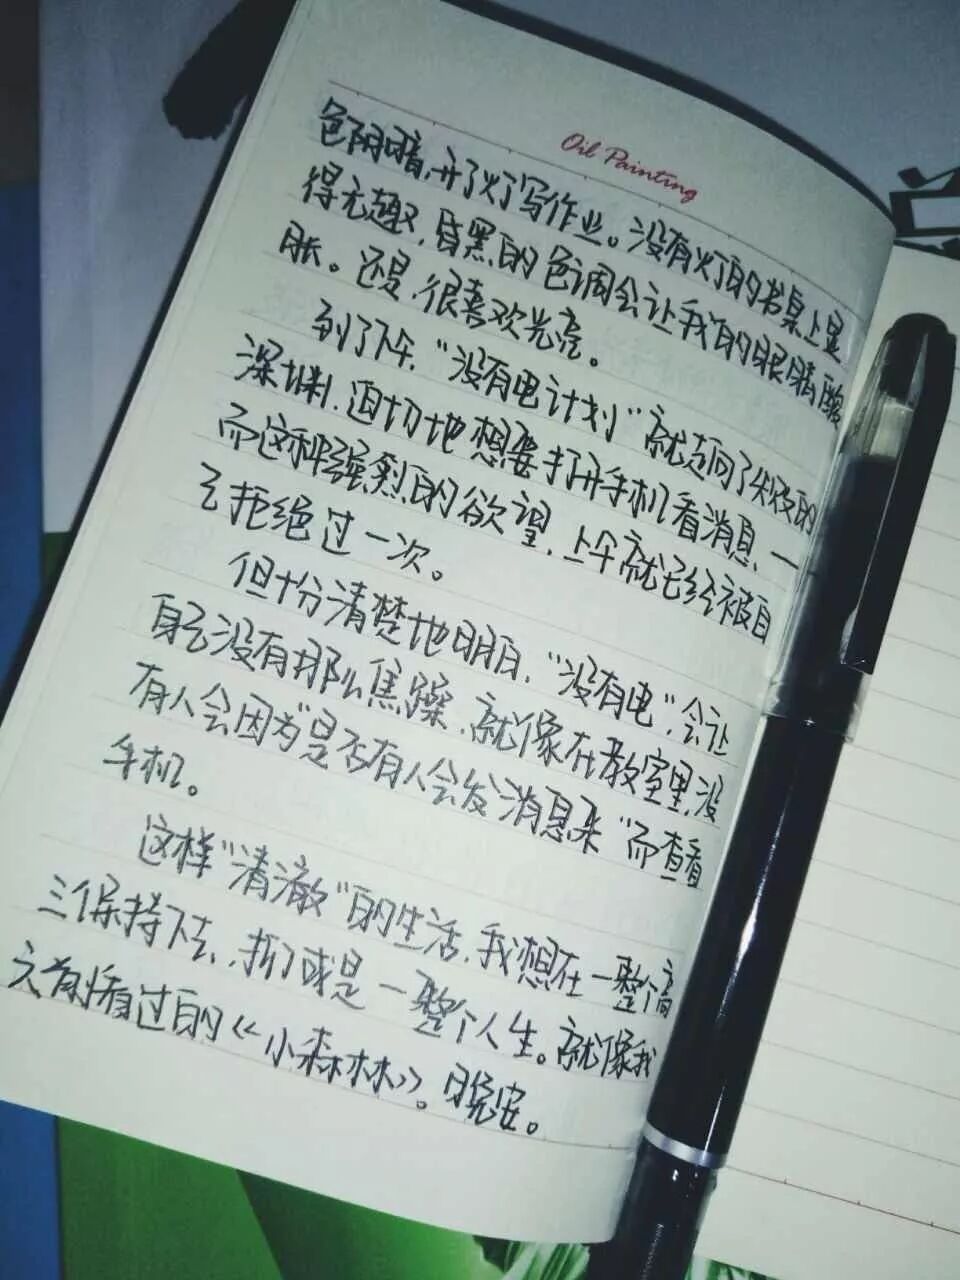 Oil Painting
色阴暗,开了灯写作业。没有灯的书桌上显
得无趣,昏黑的色调会让我的眼睛酸
胀。还是,很喜欢光亮。
到了下午,“没有电计划”就趋向了失败的
深渊,迫切地想要打开手机看消息,一
而这种强烈的欲望,上午就已经被自
己拒绝过一次。
但十分清楚地明白,“没有电”会让
自己没有那么焦躁,就像在教室里,没
有人会因为“是否有人会发消息来”而查看
手机。
这样“清澈”的生活,我想在一整个高
三保持下去,抑或是一整个人生。就像我
之前看过的《小森林》。晚安。